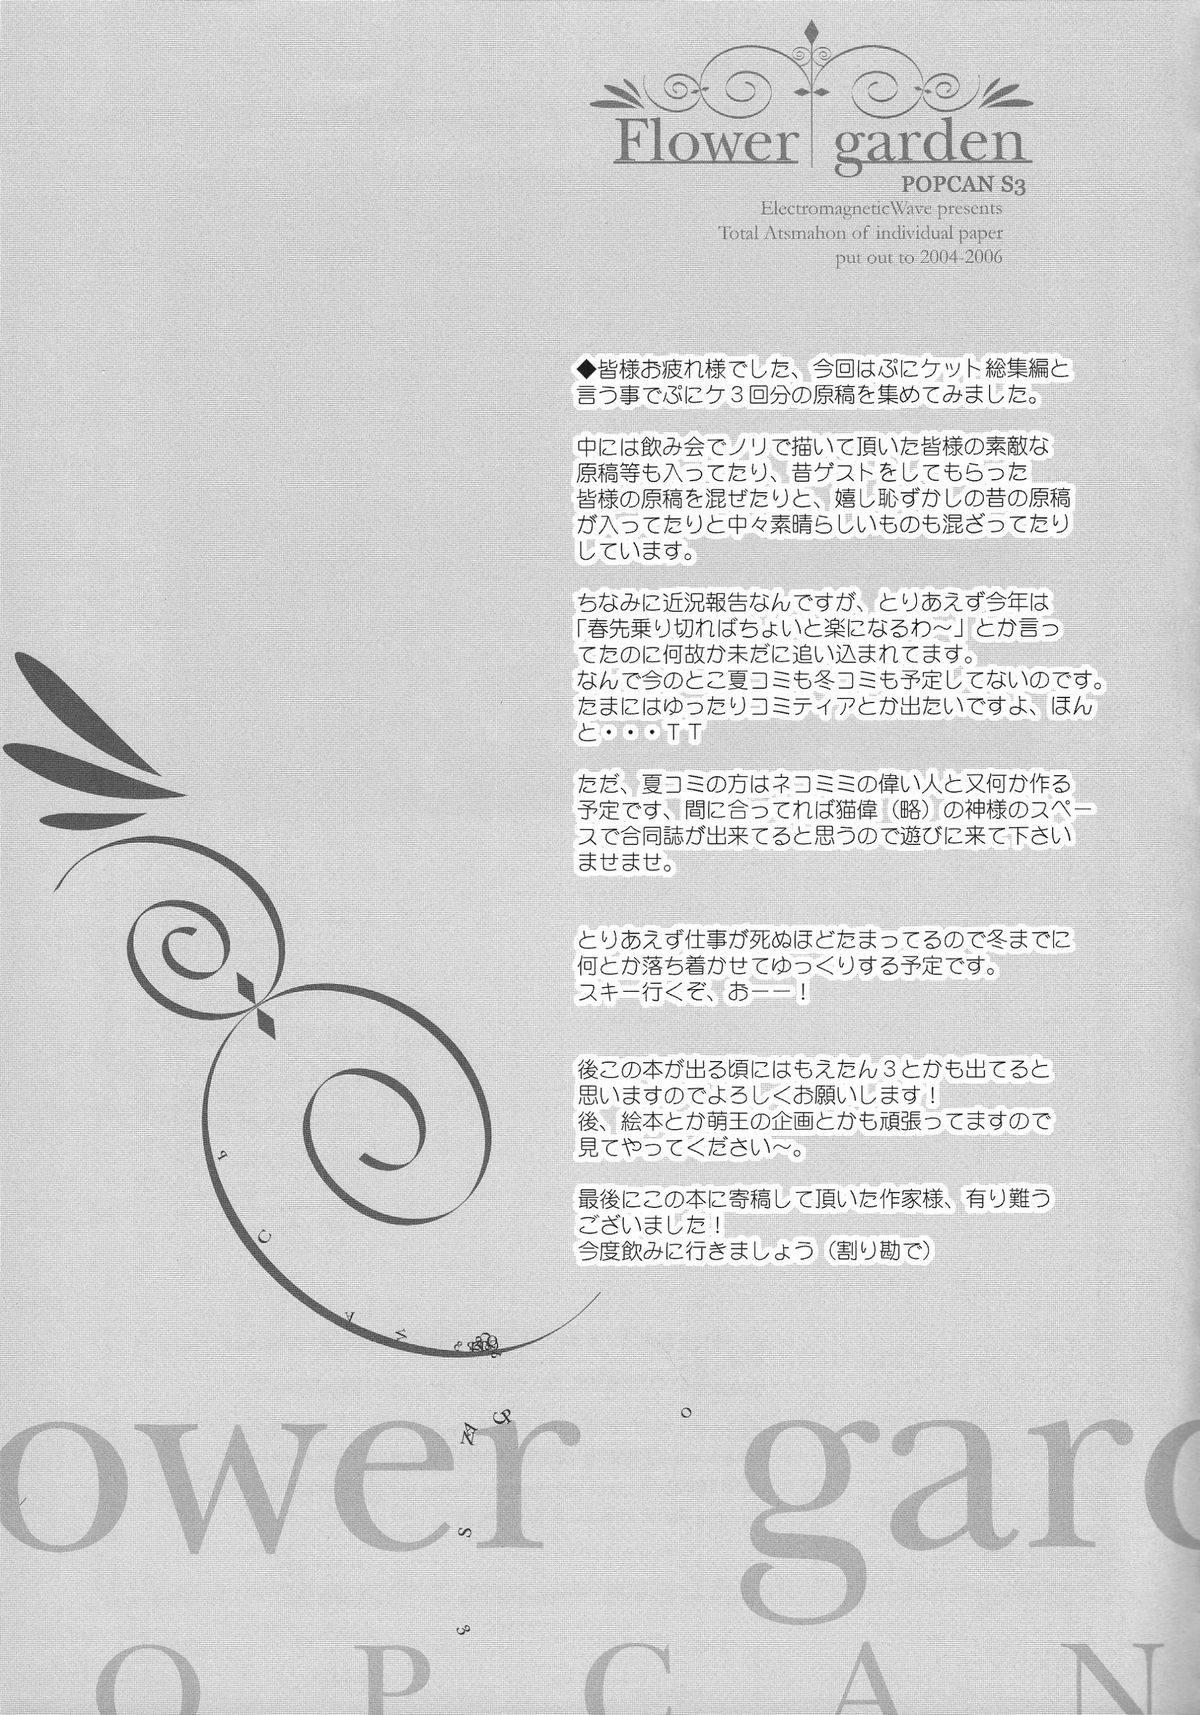 Flower garden
POPCAN S3
ElectromagneticWave presents
Total Atsmahon of individual paper
put out to 2004-2006
◆皆様お疲れ様でした、今回はぷにケット総集編と
言う事でぷにケ３回分の原稿を集めてみました。
中には飲み会でノリで描いて頂いた皆様の素敵な
原稿等も入ってたり、昔ゲストをしてもらった
皆様の原稿を混ぜたりと、嬉し恥ずかしの昔の原稿
が入ってたりと中々素晴らしいものも混ざってたり
しています。
ちなみに近況報告なんですが、とりあえず今年は
「春先乗り切ればちょいと楽になるわ～」とか言っ
てたのに何故か未だに追い込まれてます。
なんで今のとこ夏コミも冬コミも予定してないのです。
たまにはゆったりコミティアとか出たいですよ、ほん
と・・・ＴＴ
ただ、夏コミの方はネコミミの偉い人と又何か作る
予定です、間に合ってれば猫偉（略）の神様のスペー
スで合同誌が出来てると思うので遊びに来て下さい
ませませ。
とりあえず仕事が死ぬほどたまってるので冬までに
何とか落ち着かせてゆっくりする予定です。
スキー行くぞ、おーー！
後この本が出る頃にはもえたん３とかも出てると
思いますのでよろしくお願いします！
後、絵本とか萌王の企画とかも頑張ってますので
見てやってください～。
最後にこの本に寄稿して頂いた作家様、有り難う
ございました！
今度飲みに行きましょう（割り勘で）
ower gard
O P C A N